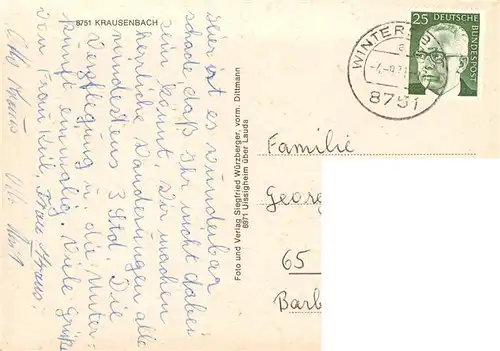 8751 KRAUSENBACH
Hier ist es wunderbar
schade, daß Ihr nicht dabei
sein könnt. Wir machen
herrliche Wanderungen alle
mindestens 3 Std. Die
Verpflegung u. die Unter-
kunft einmalig. Viele Grüße
von Frau Kiel, Frau Kraus,
Otto Kraus
Foto und Verlag Siegfried Würzberger, vorm. Dittmann
6971 Uissigheim über Lauda
25 DEUTSCHE
BUNDESPOST
WINTERS
8751
Familie
Georg
65
Barb